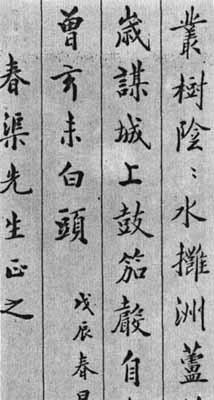 叢樹陰〻水攤洲蘆
歲謀城上鼓笳聲自
曾亥未白頭
戊辰春
春渠先生正之